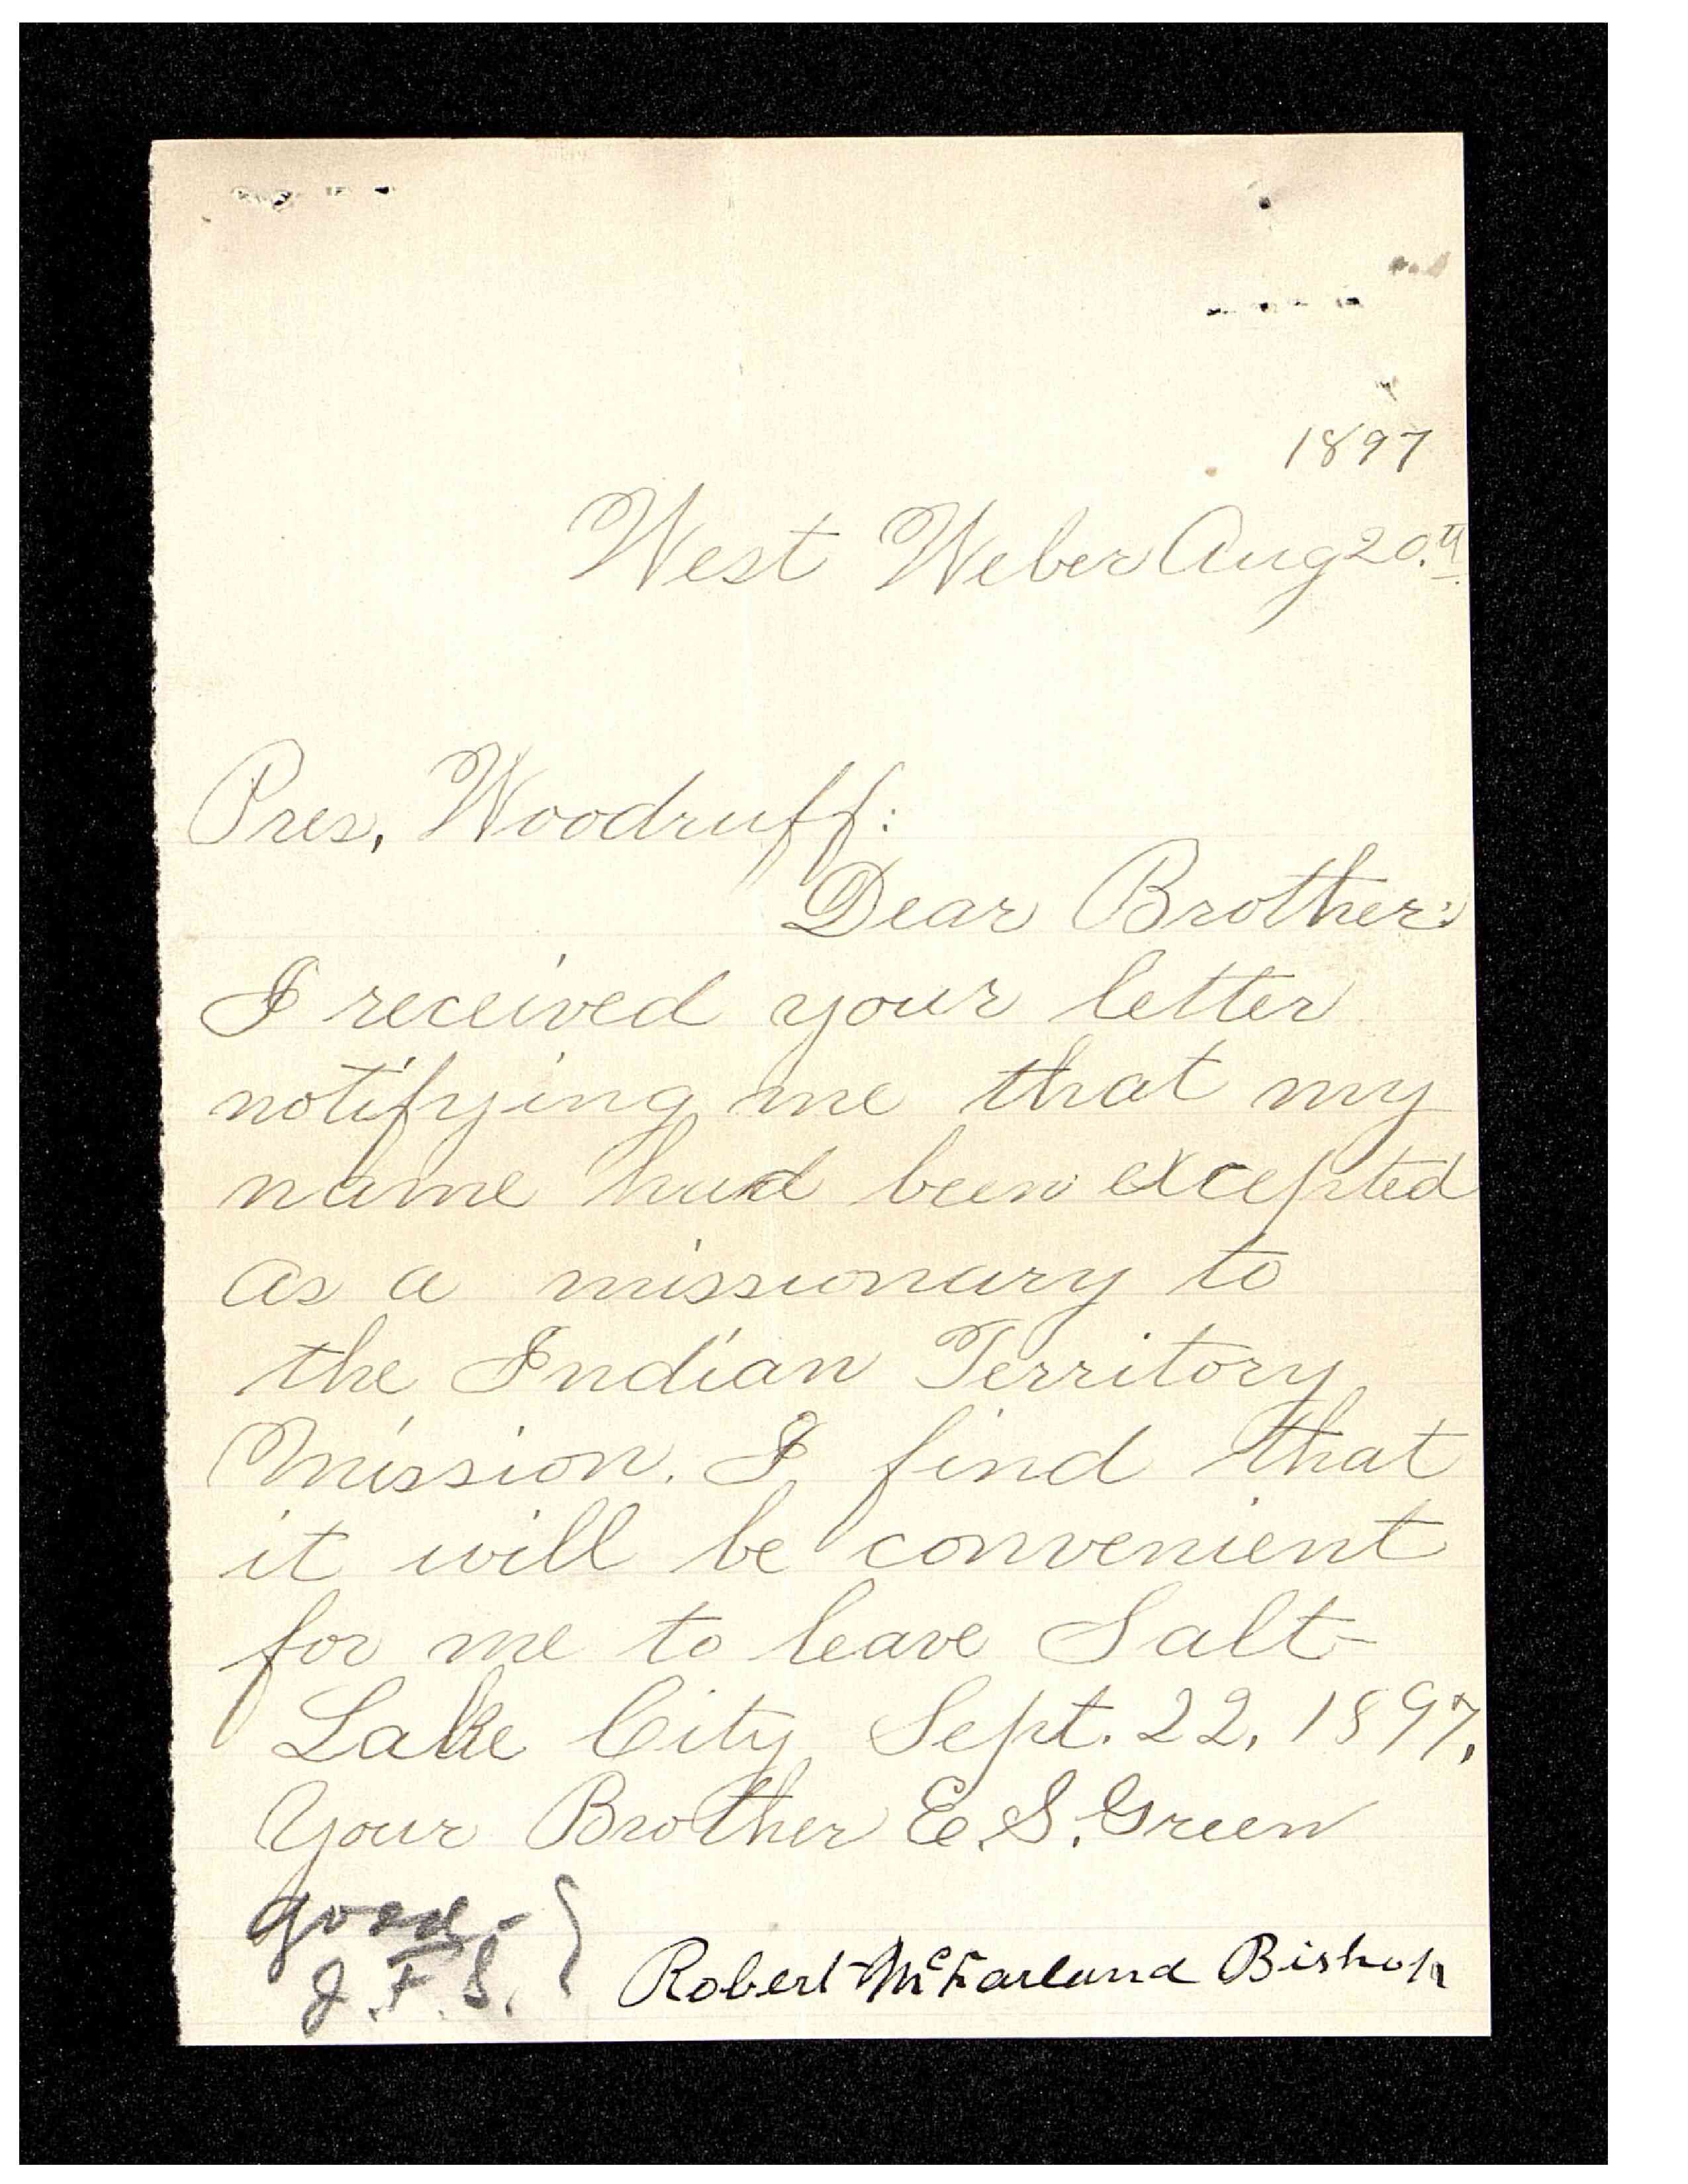 1897
West Weber Aug 20.th
Pres, Woodruff:
Dear Brother:
I received your letter
notifying me that my
name had been excepted
as a missionary to
the Indian Territory
Mission. I find that
it will be convenient
for me to leave Salt-
Lake City Sept. 22, 1897.
Your Brother E. S. Green
good-
J. F. S.
Robert McFarland Bishop